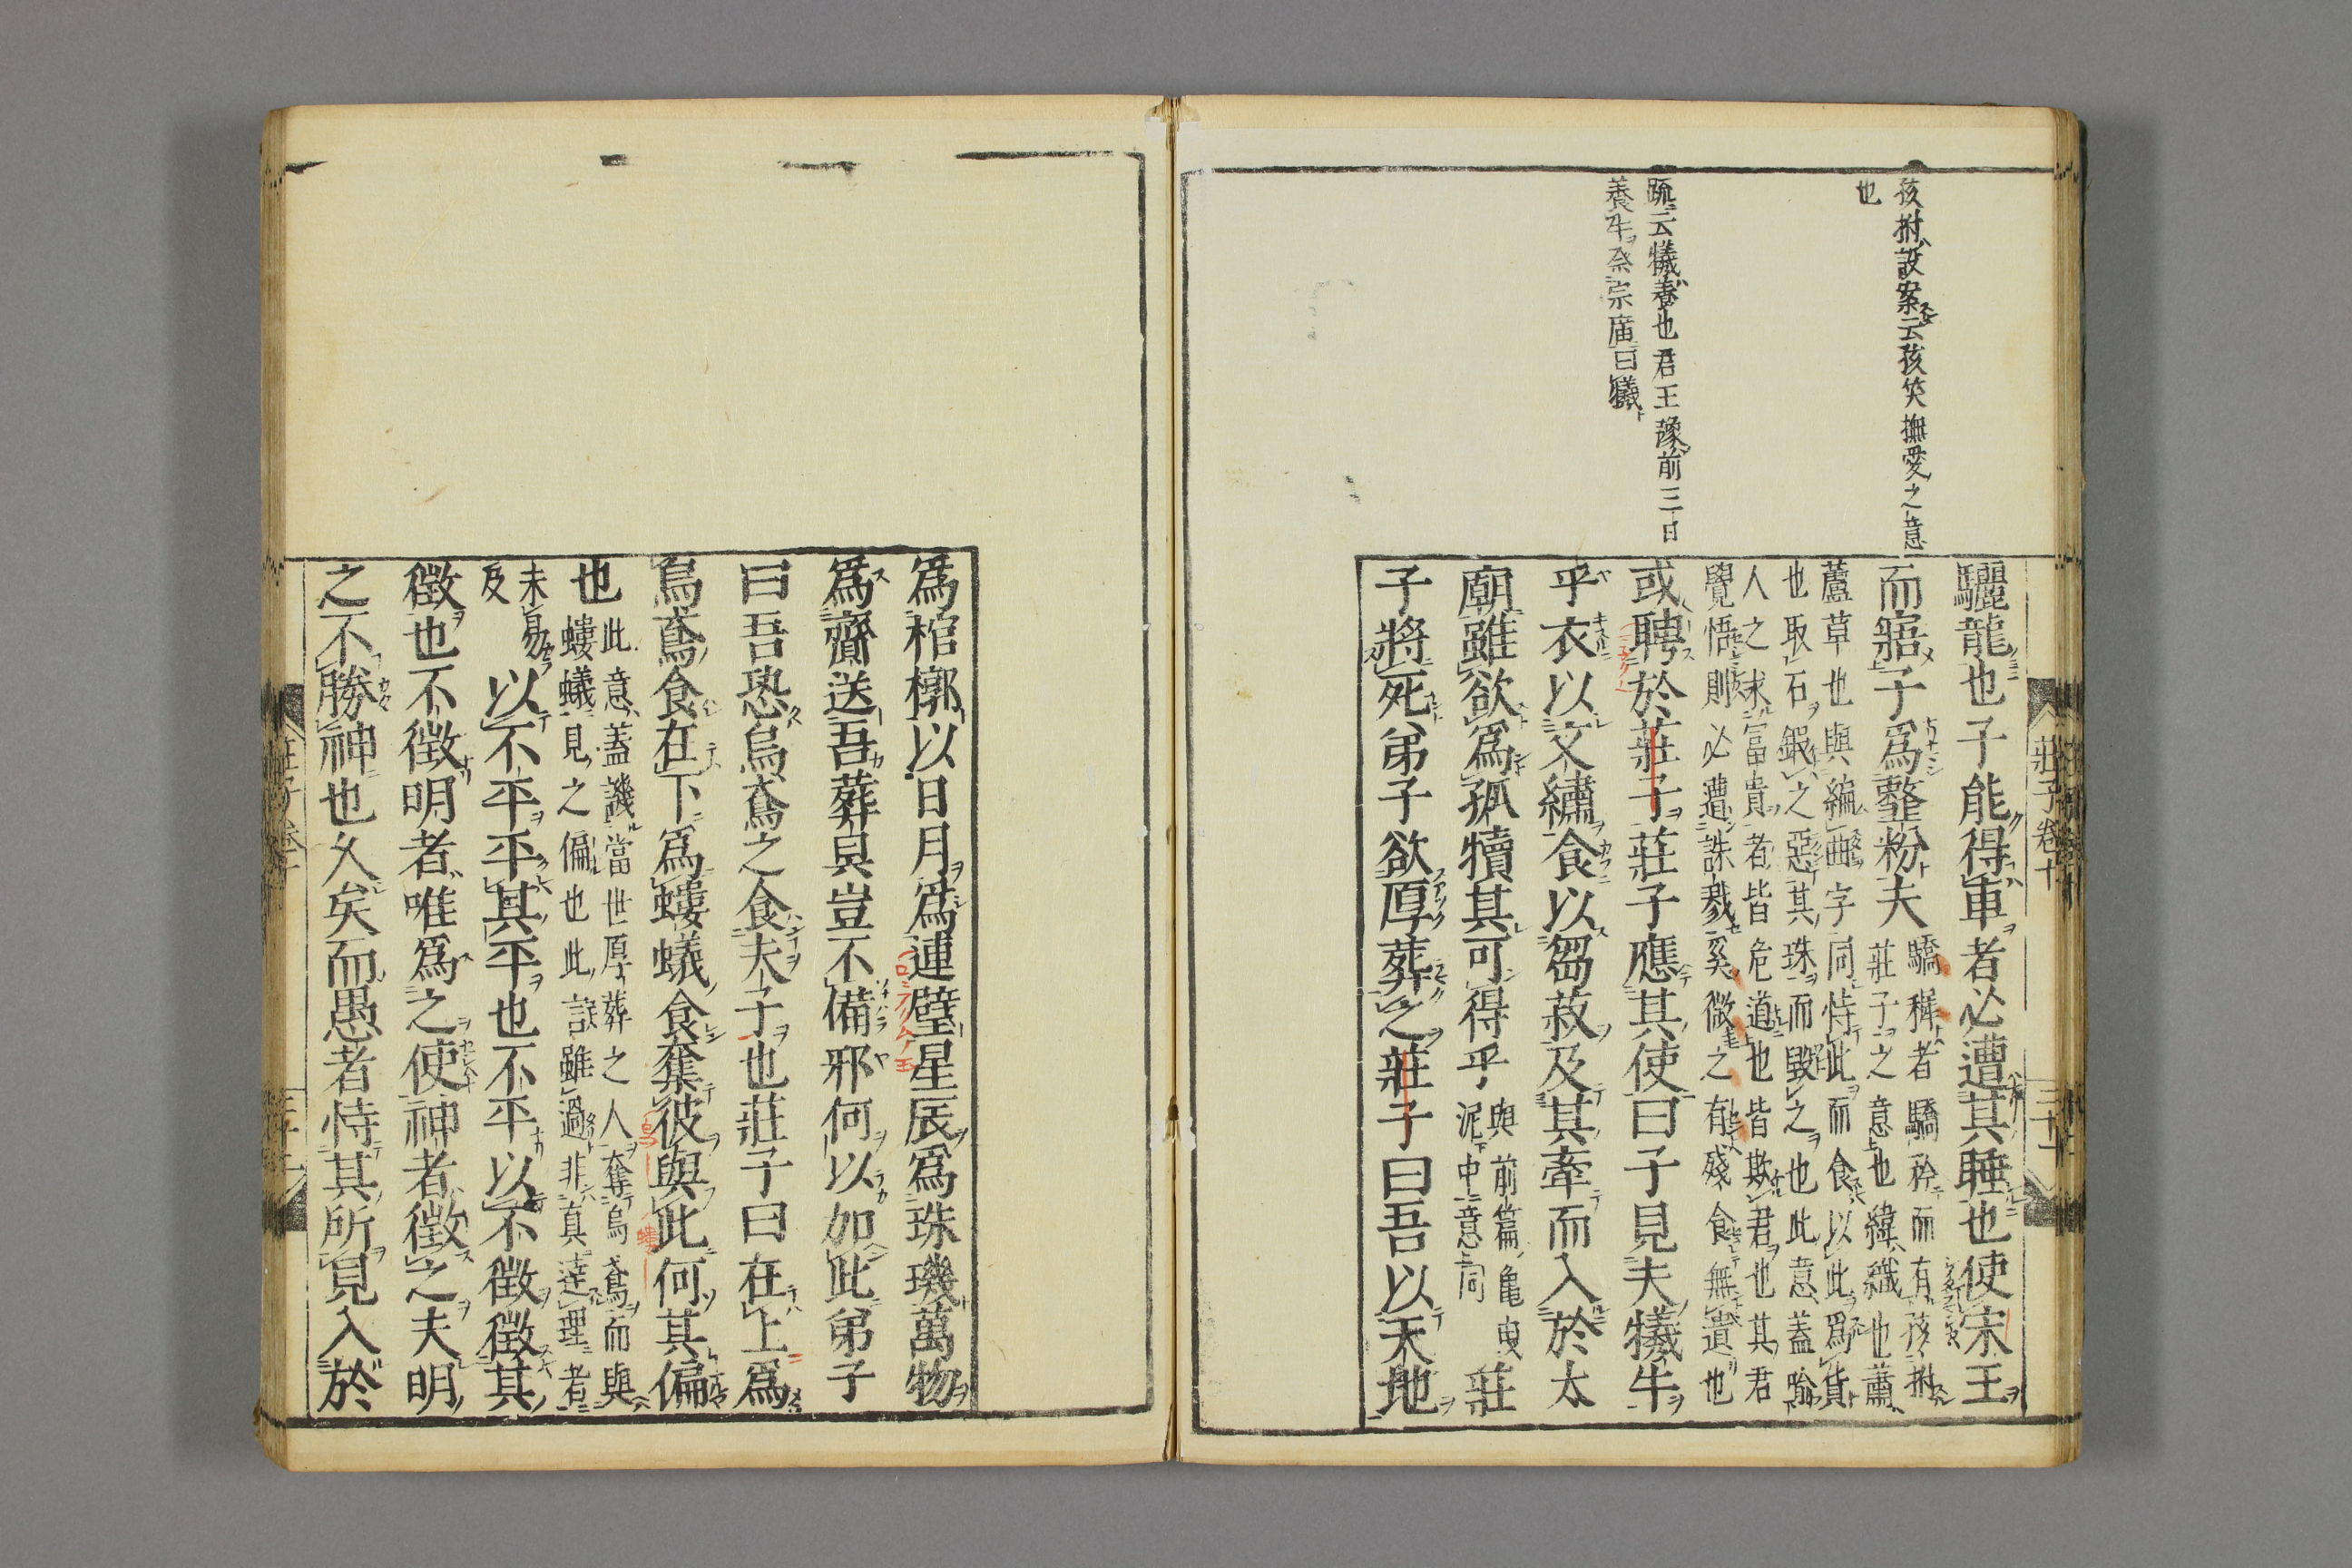 孩拊設案云孩笑撫愛之意
也
疏云犧養也君王豫前三日
養牛祭宗廟曰犧
驪龍也子能得車者必遭其睡也使宋王
而寤子爲韲粉夫
驕穉者驕矜而有孩拊
莊子之意也緯織也蕭
蘆草也與編曲字同恃此而食以此爲貨
也取石鍜之惡其珠而毀之也此意蓋喻
人之求富貴者皆危道也皆欺君也其君
覺悟則必遭誅戮奚微之有殘食無遺也
或聘於莊子莊子應其使曰子見夫犧牛
乎衣以文繡食以芻菽及其牽而入於太
廟雖欲爲孤犢其可得乎
與前篇亀曳
泥中意同
莊
子將死弟子欲厚葬之莊子曰吾以天地
莊子卷十
三十一
爲棺槨以日月爲連璧星辰爲珠璣萬物
爲齎送吾葬具豈不備邪何以加此弟子
曰吾恐烏鳶之食夫子也莊子曰在上爲
烏鳶食在下爲螻蟻食奪彼與此何其偏
也
此意蓋譏當世厚葬之人奪烏鳶而與
螻蟻見之偏也此言雖過非眞達理者
未易
及
以不平平其平也不平以不徵徵其
徵也不徵明者唯爲之使神者徵之夫明
之不勝神也久矣而愚者恃其所見入於